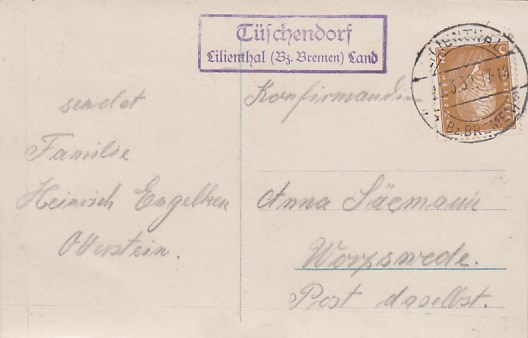 Tüschendorf
Lilienthal (Bz. Bremen) Land
LILIENTHAL
17-18
(BZ. BREMEN)
sendet
Familie
Heinrich Engelken
Otterstein.
Konfirmandin
Anna Säemann
Worpswede.
Post daselbst.